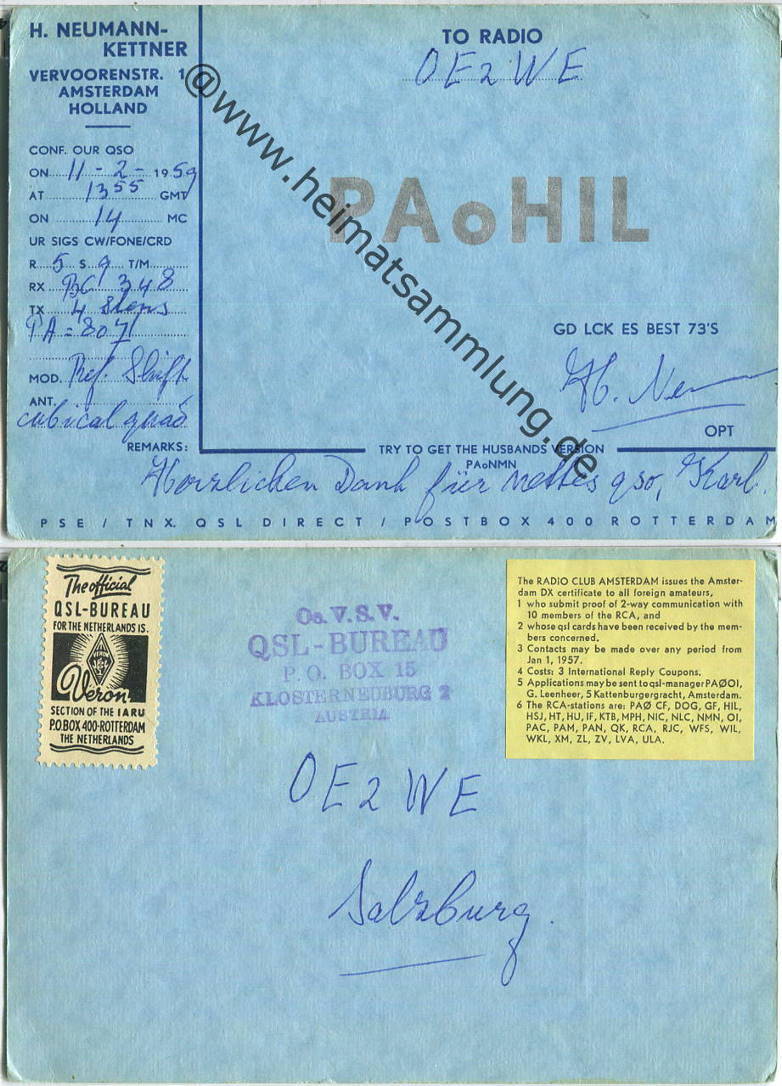 H. NEUMANN-
KETTNER
VERVOORENSTR. 1
AMSTERDAM
HOLLAND
CONF. OUR QSO
ON 11-2-1959
AT 1355 GMT
ON 14 MC
UR SIGS CW/FONE/CRD
R 5 S 9 T/M
RX BC 348
TX 4 Stens
PA = 807
MOD. Ref. Shift
ANT.
cubical quad
REMARKS:
TO RADIO
OE2WE
PAoHIL
GD LCK ES BEST 73'S
H. Neu
OPT
TRY TO GET THE HUSBANDS VERSION
PAoNMN
Herzlichen Dank für nettes qso, Karl.
PSE / TNX. QSL DIRECT / POSTBOX 400 ROTTERDAM
@www.heimatsammlung.de
The official
QSL-BUREAU
FOR THE NETHERLANDS IS.
Veron
SECTION OF THE IARU
P.O.BOX 400-ROTTERDAM
THE NETHERLANDS
Oe. V. S. V.
QSL-BUREAU
P. O. BOX 15
KLOSTERNEUBURG 2
AUSTRIA
The RADIO CLUB AMSTERDAM issues the Amster-
dam DX certificate to all foreign amateurs,
1 who submit proof of 2-way communication with
10 members of the RCA, and
2 whose qsl cards have been received by the mem-
bers concerned.
3 Contacts may be made over any period from
Jan 1, 1957.
4 Costs: 3 International Reply Coupons.
5 Applications may be sent to qsl-manager PAØOI,
G. Leenheer, 5 Kattenburgergracht, Amsterdam.
6 The RCA-stations are: PAØ CF, DOG, GF, HIL,
HSJ, HT, HU, IF, KTB, MPH, NIC, NLC, NMN, OI,
PAC, PAM, PAN, QK, RCA, RJC, WFS, WIL,
WKL, XM, ZL, ZV, LVA, ULA.
OE2WE
Salzburg.